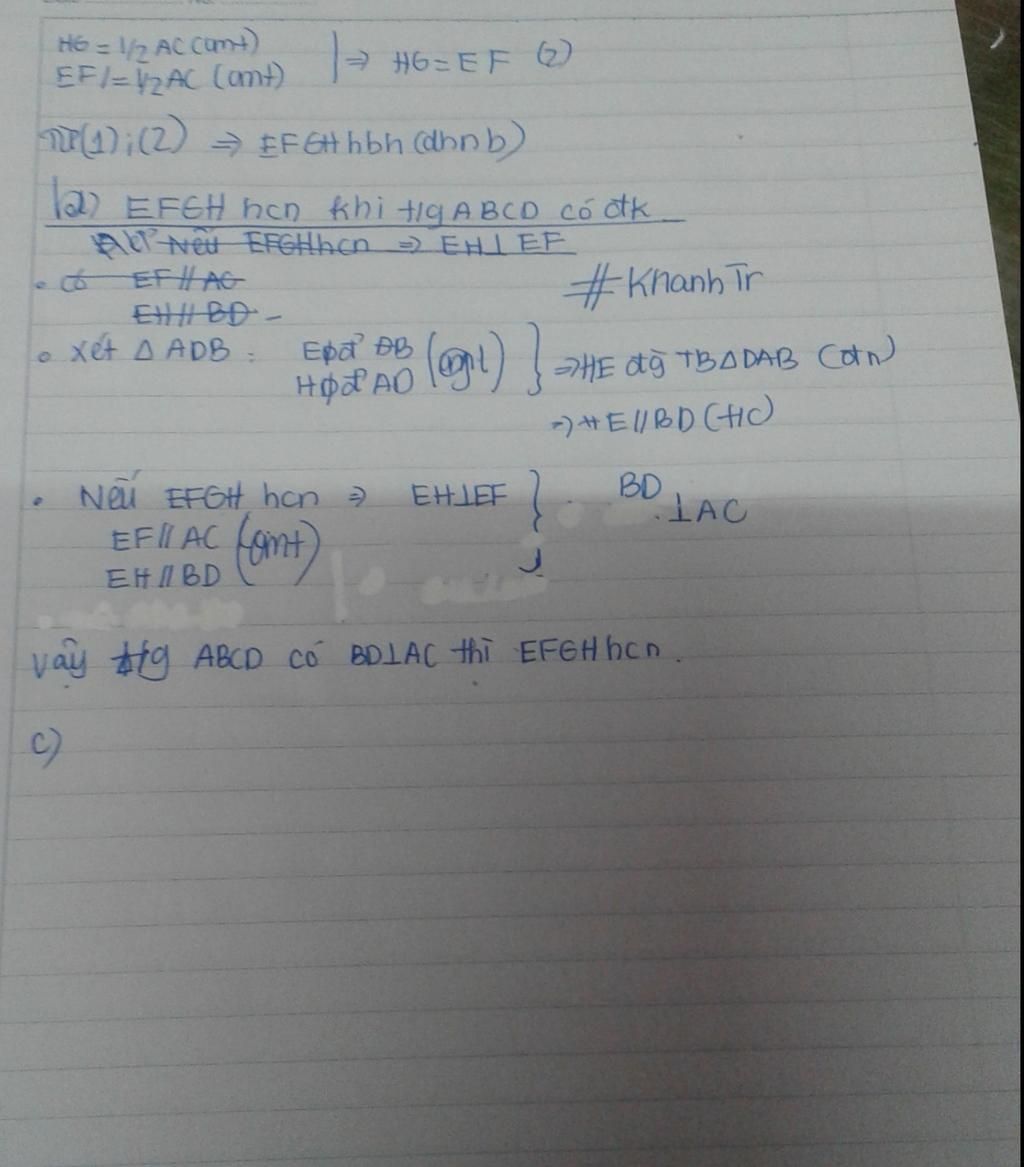 HG = 1/2 AC (cmt)
EF = 1/2 AC (cmt) | ⇒ HG = EF (2)
Từ (1); (2) ⇒ EFGH hbh (dhnb)
EFGH hcn khi t/g ABCD có đk
Nếu EFGH hcn ⇒ EH⊥EF
. có EF // AC
EH // BD
# Khanh Tr
Xét Δ ADB :
HE đg TB Δ DAB (đn)
⇒ HE // BD (t/c)
. Nếu EFGH hcn ⇒ EH⊥EF } BD ⊥AC
EF // AC (cmt)
EH // BD
Vậy t/g ABCD có BD⊥AC thì EFGH hcn.
c)